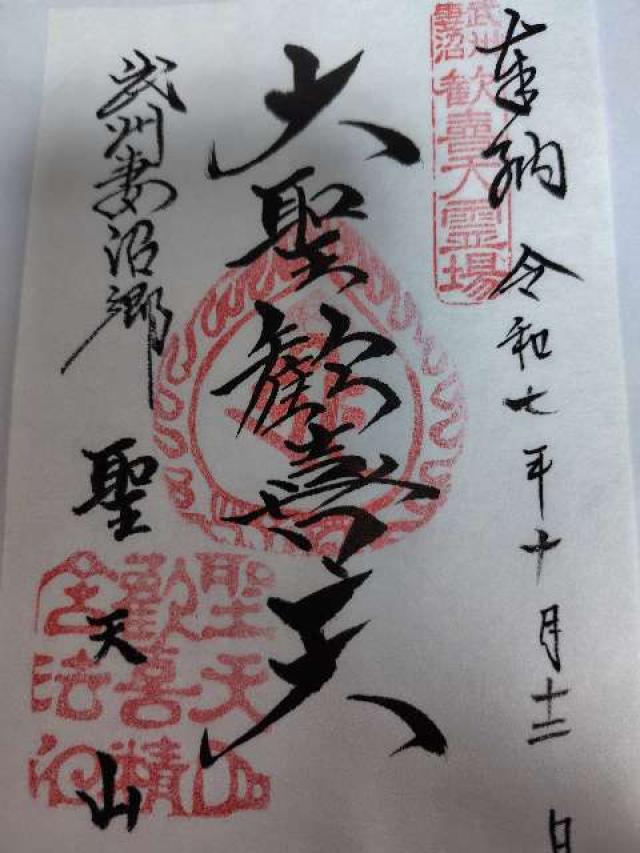 奉納 令和七年十月十二日
武州
妻沼
歓喜天霊場
大聖歓喜天
武州妻沼郷
聖天山
聖天山
歓喜精
舎法印